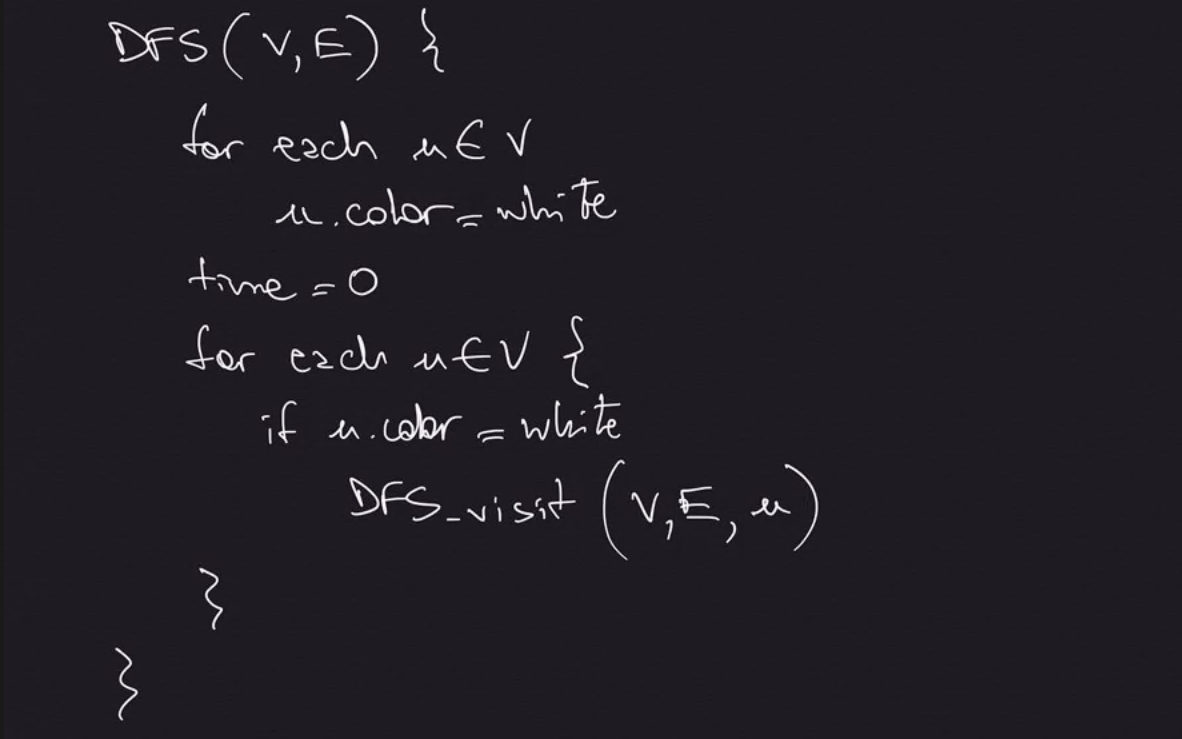 DFS(V,E) {
for each u∈V
u.color=white
time=0
for each u∈V {
if u.color=white
DFS_visit(V,E,u)
}
}